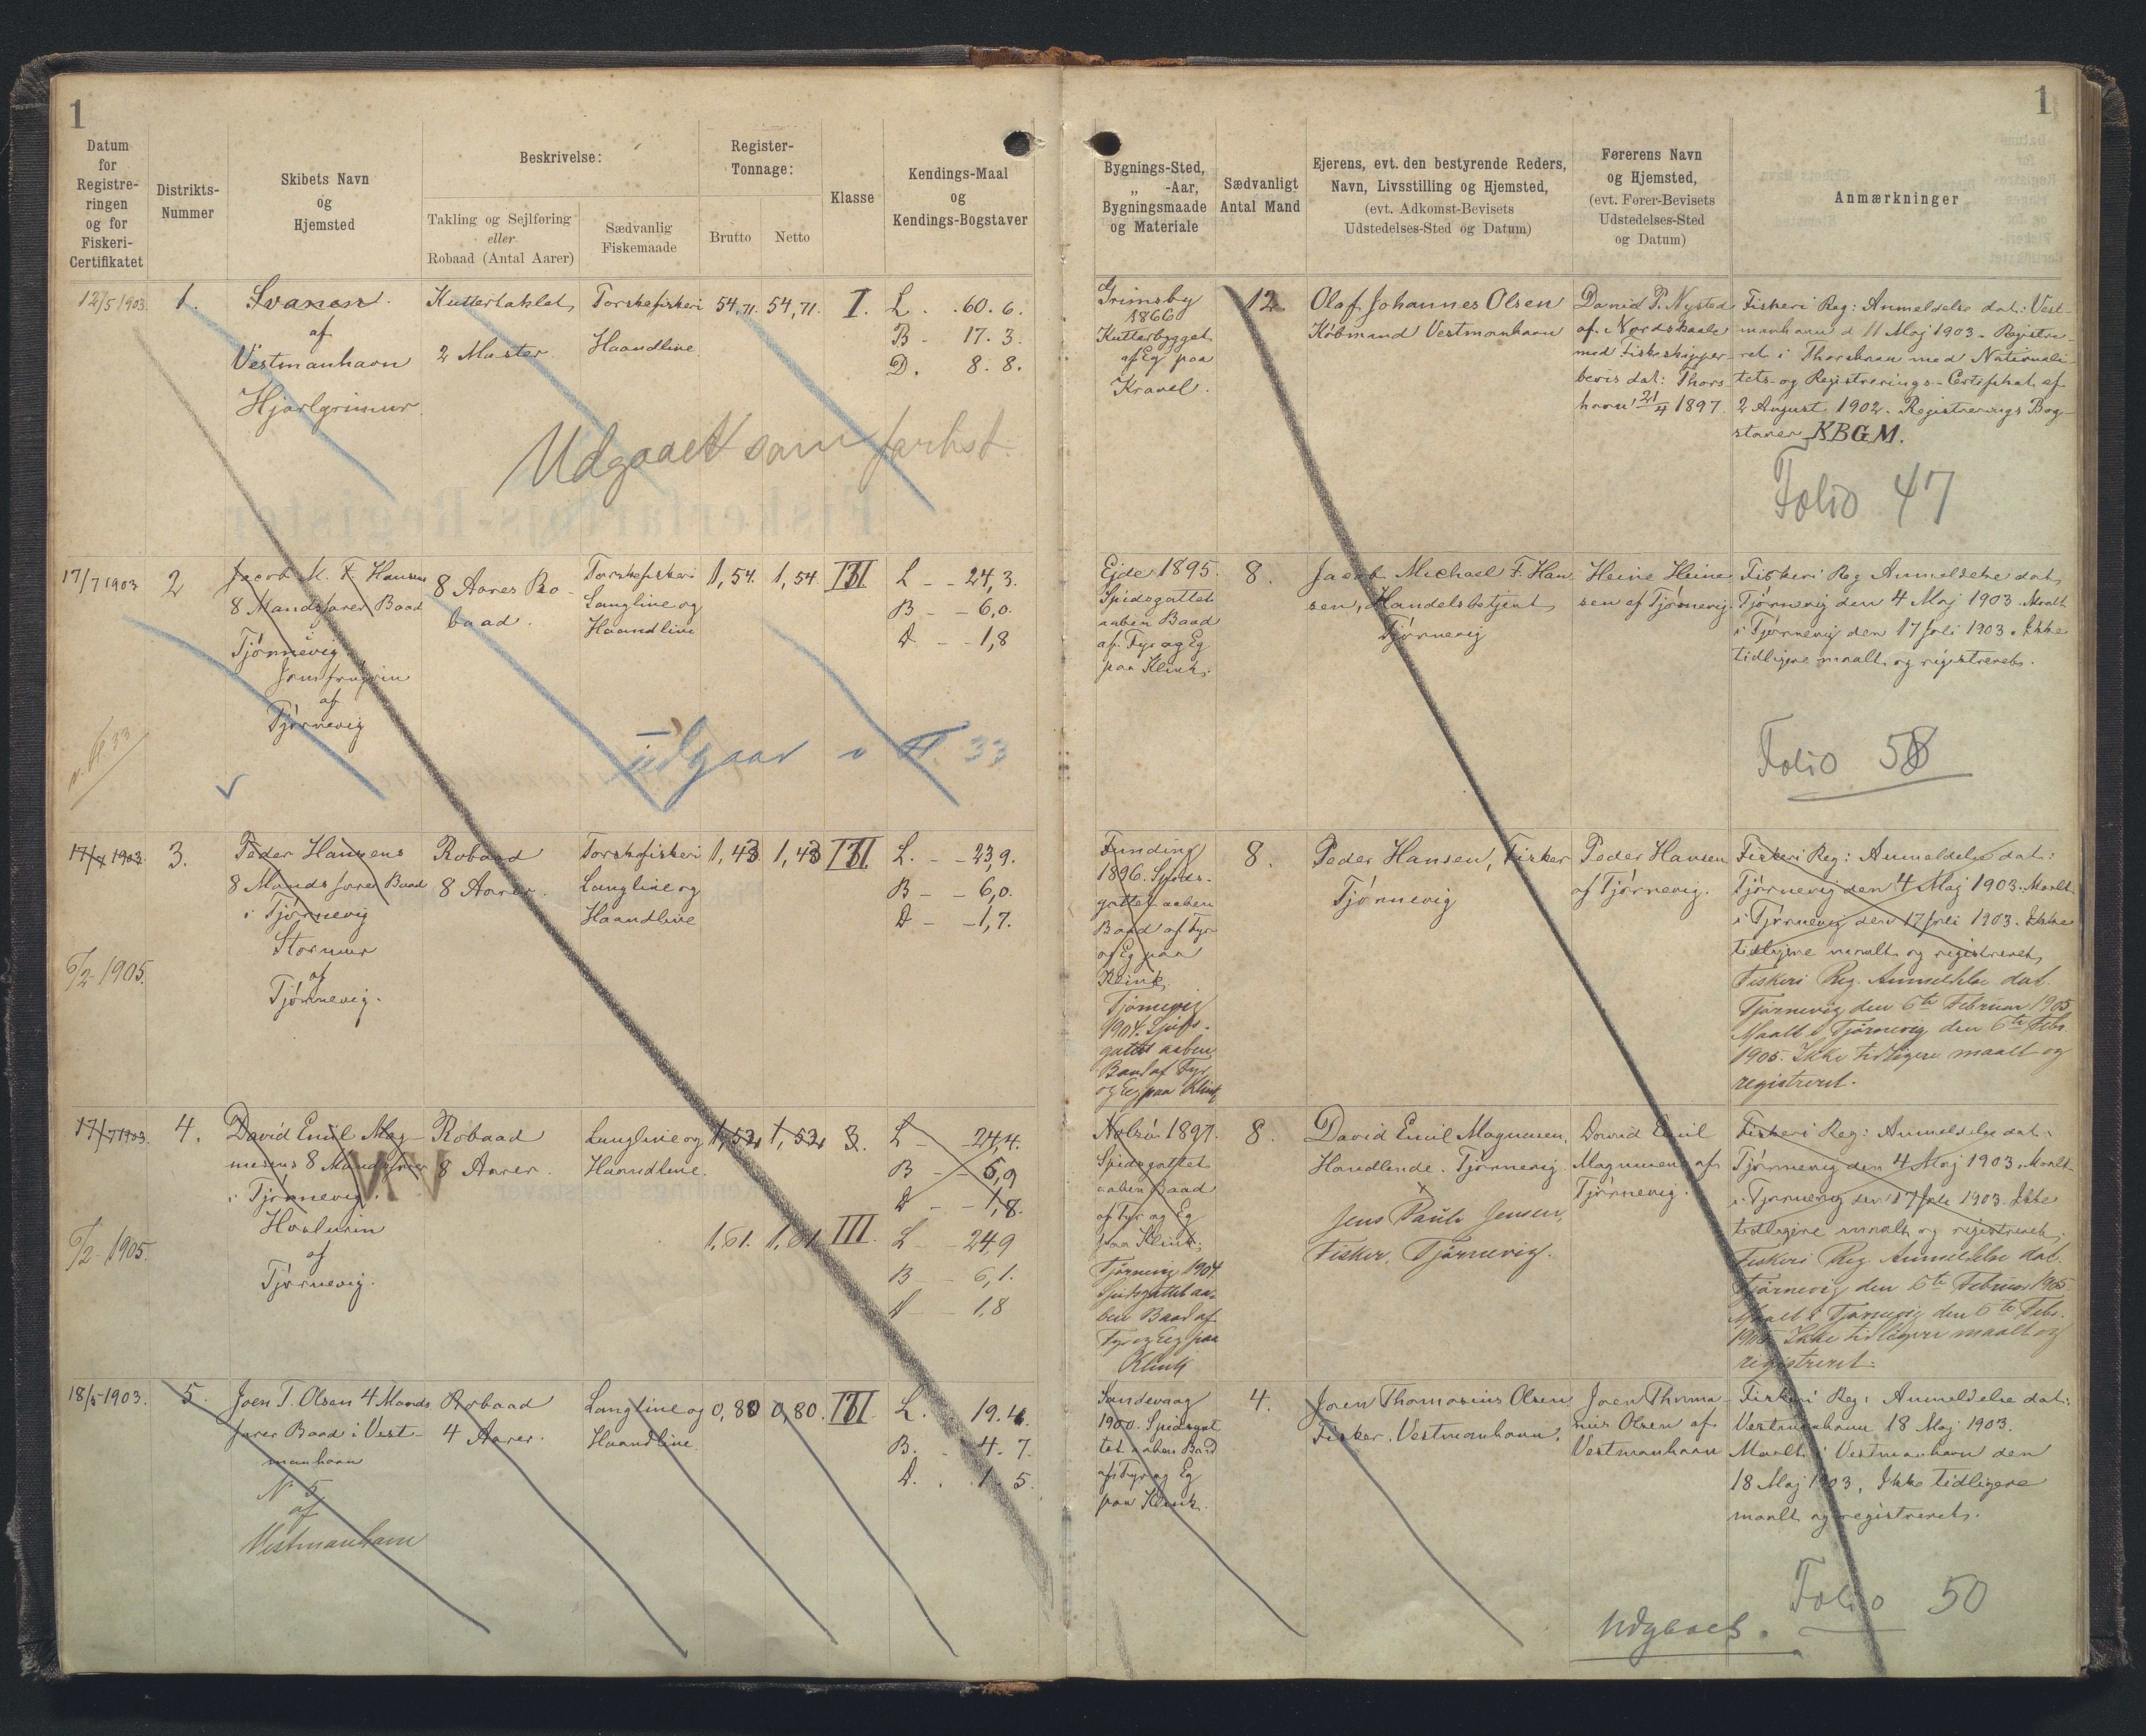 1
Datum
for
Registre-
ringen
og for
Fiskeri-
Certifikatet
Distrikts-
Nummer
Skibets Navn
og
Hjemsted
Beskrivelse:
Takling og Sejlføring
eller
Robaad (Antal Aarer)
Sædvanlig
Fiskemaade
Register-
Tonnage:
Brutto
Netto
Klasse
Kendings-Maal
og
Kendings-Bogstaver
12/5 1903.
1.
Svanen.
af
Vestmanhavn
Hjarlgrimur.
Kuttertaklet,
2 Master.
Torskefiskeri
Haandline.
54,71.
54,71.
I.
L. . 60. 6.
B - 17. 3.
D. 8. 8.
Udgaaet som forhst.
17/7 1903
2
Jacob M. F. Hansens
8 Mandsfarer Baad
i
Tjørnevig.
Jomfrugvin
af
Tjørnevig
8 Aares Ro-
baad.
Torskefiskeri
Langline og
Haandline
1,54.
1,54.
III
L - - 24,3.
B - - 6,0.
D - - 1,8
udgaar v. F. 33
17/7 1903.
3.
Peder Hansens
8 Mandsfarer Baad
i Tjørnevig
Stormur
af
Tjørnevig.
6/2 1905.
Robaad
8 Aarer.
Torskefiskeri
Langline og
Haandline
1,43
1,43
III
L. - - 23,9.
B - - 6,0.
D - - 1,7.
17/7 1903.
4.
David Emil Mag-
nusens 8 Mandsfarer
i Tjørnevig.
Havlurin
af
Tjørnevig.
6/2 1905.
Robaad
8 Aarer.
Langline og
Haandline.
1,52
1,52
3.
L - 24,4.
B - 5,9
D - 1,8.
1,61.
1,61
III.
L - 24,9
B - - 6,1.
D - - 1,8
18/5 1903.
5.
Joen T. Olsen 4 Mands
farer Baad i Vest-
manhavn
No 5
af
Vestmanhavn
Robaad
4 Aarer.
Langline og
Haandline.
0,80
0,80.
III.
L. 19. 4.
B. - 4. 7.
D. . . 1. 5.
1
Bygnings-Sted,
„ -Aar,
Bygningsmaade
og Materiale
Sædvanligt
Antal Mand
Ejerens, evt. den bestyrende Reders,
Navn, Livsstilling og Hjemsted,
(evt. Adkomst-Bevisets
Udstedelses-Sted og Datum)
Førerens Navn
og Hjemsted,
(evt. Fører-Bevisets
Udstedelses-Sted
og Datum)
Anmærkninger
Grimsby
1866
Kutterbygget
af Eg paa
Kravel.
12
Olaf Johannes Olsen
Købmand Vestmanhavn
Daniel P. Nysted
af Nordskaale
med Fiskeskipper-
bevis dat: Thors-
havn 21/4 1897.
Fiskeri Reg: Anmeldelse dat: Vest-
manhavn d 11 Maj 1903. Registre-
ret i Thorshavn med Nationali-
tets- og Registrerings-Certifikat af
2 August 1902. Registrerings Bog-
staver KBGM.
Folio 47
Ejde 1895.
Spidsgattet
aaben Baad
af Fyr og Eg
paa Klink.
8.
Jacob Michael F. Han
sen, Handelsbetjent
Tjørnevig
Heine Heine
sen af Tjørnevig.
Fiskeri Reg Anmeldelse dat
Tjørnevig den 4 Maj 1903. Maalt
i Tjørnevig den 17 Juli 1903. Ikke
tidligere maalt og registreret.
Folio 58
Funding
1896. Spids-
gattet aaben
Baad af Fyr
og Eg paa
Klink.
Tjørnevig
1904. Spids-
gattet aaben
Baad af Fyr
og Eg paa Klink
8.
Peder Hansen, Fisker
Tjørnevig
Peder Hansen
af Tjørnevig.
Fiskeri Reg: Anmeldelse dat:
Tjørnevig den 4 Maj 1903. Maalt
i Tjørnevig den 17 Juli 1903. Ikke
tidligere maalt og registreret,
Fiskeri Reg. Anmeldelse dat.
Tjørnevig den 6te Februar 1905
Maalt i Tjørnevig den 6te Febr.
1905. Ikke tidligere maalt og
registreret.
Nolsø 1897.
Spidsgattet
aaben Baad
af Fyr og Eg
paa Klink.
Tjørnevig 1904.
Spidsgattet aa-
ben Baad af
Fyr og Eg paa
Klink
8.
David Emil Magnusen,
Handlende. Tjørnevig.
Jens Pauli Jensen,
Fisker, Tjørnevig.
David Emil
Magnusen af
Tjørnevig.
Fiskeri Reg: Anmeldelse dat.
Tjørnevig den 4 Maj 1903. Maalt
i Tjørnevig den 17 Juli 1903. Ikke
tidligere maalt og registreret,
Fiskeri Reg. Anmeldelse dat.
Tjørnevig den 6te Februar 1905
Maalt i Tjørnevig den 6te Febr.
1905. Ikke tidligere maalt og
registreret.
Sandevaag
1900. Spidsgat
tet aaben Baad
af Fyr og Eg
paa Klink.
4.
Joen Thomasius Olsen
Fisker. Vestmanhavn.
Joen Thoma-
sius Olsen af
Vestmanhavn
Fiskeri Reg: Anmeldelse dat:
Vestmanhavn 18 Maj 1903.
Maalt i Vestmanhavn den
18 Maj 1903. Ikke tidligere
maalt og registreret.
Folio 50
Udgaaet.